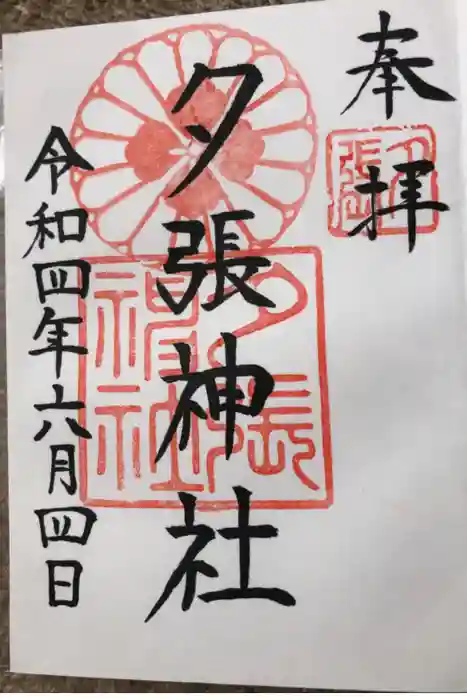 奉拝
夕張
夕張神社
夕張
神社
令和四年六月四日